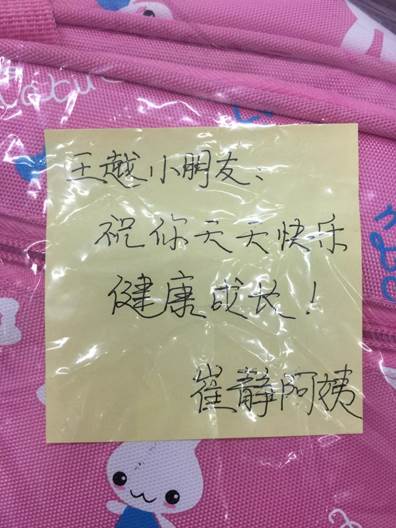 王越小朋友、
祝你天天快乐
健康成长！
崔静阿姨